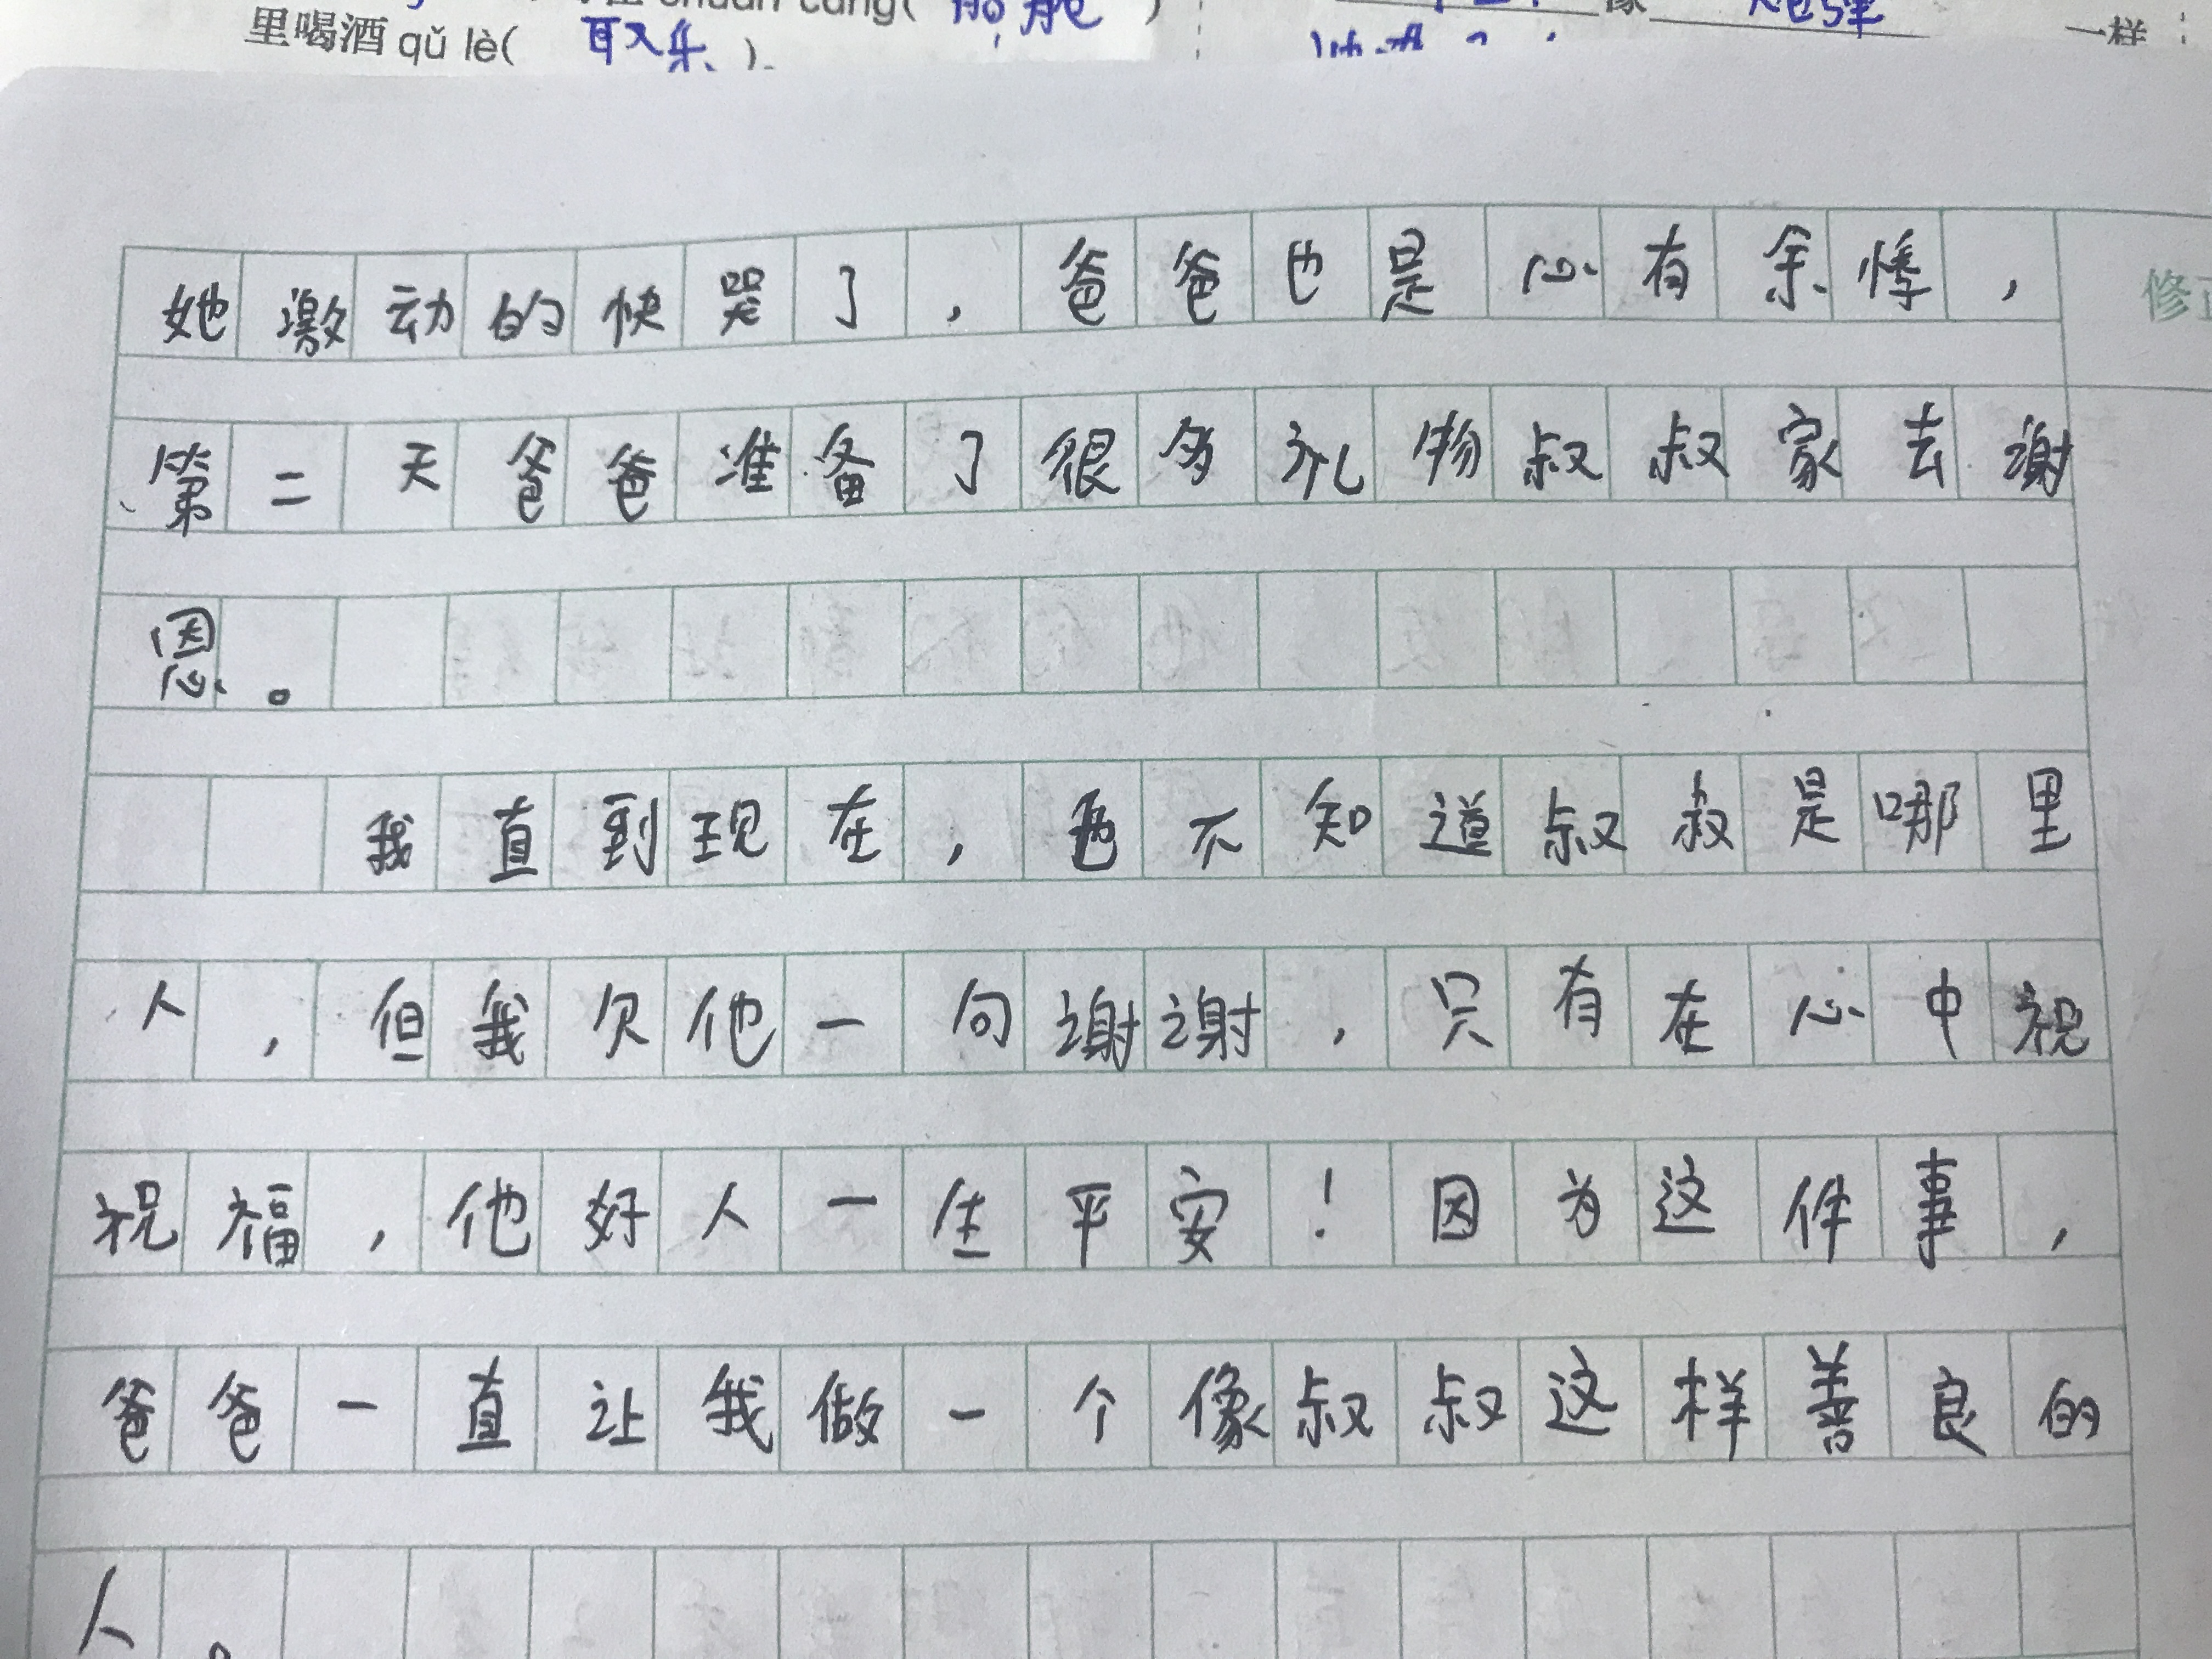 chuan cang( 船舱 )
里喝酒 qǔ lè( 取乐 ).
像 炮弹 一样
她激动的快哭了，爸爸也是心有余悸，
修正
第二天爸爸准备了很多礼物叔叔家去谢
恩。
我直到现在，也不知道叔叔是哪里
人，但我欠他一句谢谢，只有在心中祝
祝福，他好人一生平安！因为这件事，
爸爸一直让我做一个像叔叔这样善良的
人。